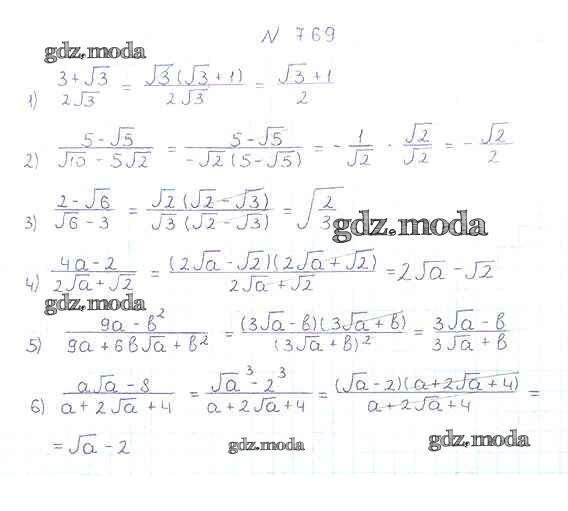 N 769
gdz.moda
1) (3+√3)/(2√3) = (√3(√3+1))/(2√3) = (√3+1)/2
2) (5-√5)/(√10-5√2) = (5-√5)/(-√2(5-√5)) = -1/√2 · √2/√2 = -√2/2
3) (2-√6)/(√6-3) = (√2(√2-√3))/(√3(√2-√3)) = √(2/3)
gdz.moda
4) (4a-2)/(2√a+√2) = ((2√a-√2)(2√a+√2))/(2√a+√2) = 2√a-√2
gdz.moda
5) (9a-b²)/(9a+6b√a+b²) = ((3√a-b)(3√a+b))/(3√a+b)² = (3√a-b)/(3√a+b)
6) (a√a-8)/(a+2√a+4) = (√a³-2³)/(a+2√a+4) = ((√a-2)(a+2√a+4))/(a+2√a+4) =
= √a-2
gdz.moda
gdz.moda